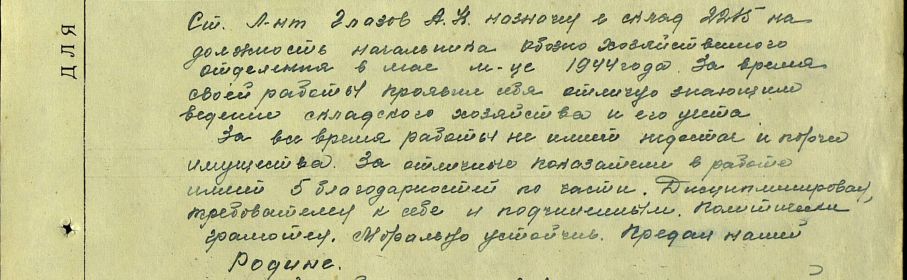 ДЛЯ
Ст. Л-нт Глазов А.К. назначен в склад 2215 на
должность начальника обозно хозяйственного
отделения в мае м-це 1944 года. За время
своей работы проявил себя отлично знающим
ведение складского хозяйства и его учета
За все время работы не имеет недостач и порчи
имущества. За отличные показатели в работе
имеет 5 благодарностей по части. Дисциплинирован,
требователен к себе и подчиненным. Политически
грамотен. Морально устойчив. Предан нашей
Родине.